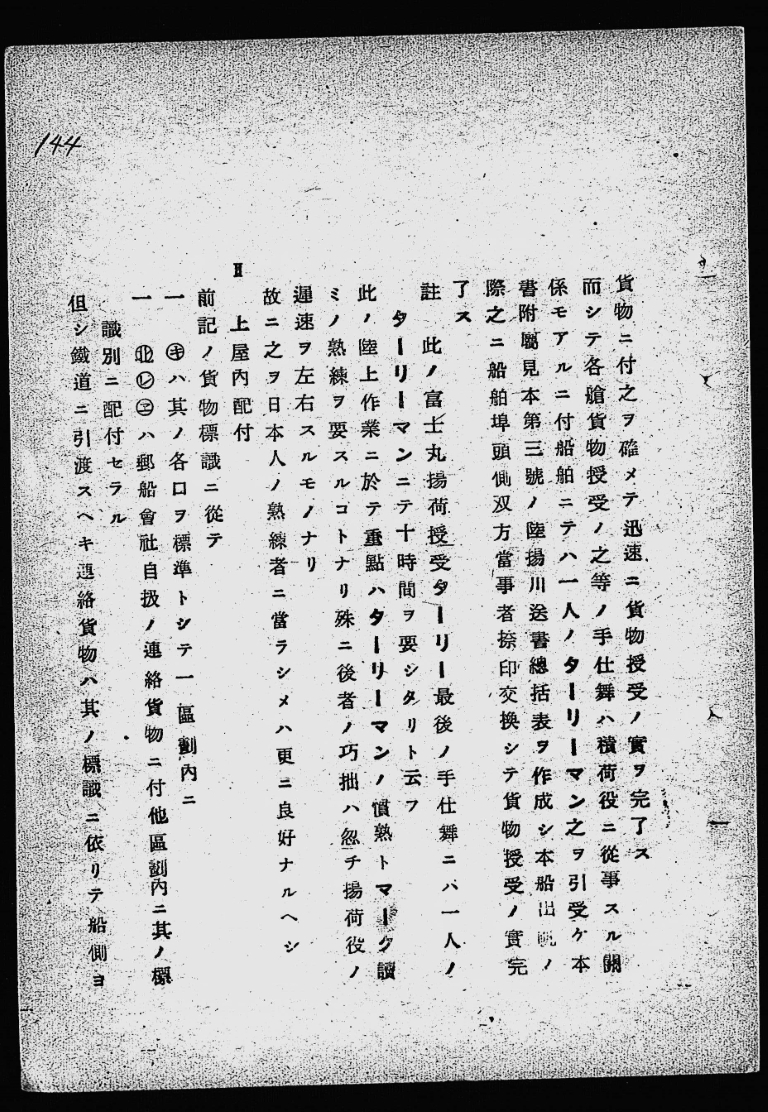 144
貨物ニ付之ヲ確メテ迅速ニ貨物授受ノ實ヲ完了ス
而シテ各艙貨物授受ノ之等ノ手仕舞ハ積荷役ニ從事スル關
係モアルニ付船舶ニテハ一人ノターリーマン之ヲ引受ケ本
書附屬見本第三號ノ陸揚川送書總括表ヲ作成シ本船出帆ノ
際之ニ船舶埠頭側双方當事者捺印交換シテ貨物授受ノ實完
了ス
註 此ノ富士丸揚荷授受ターリー最後ノ手仕舞ニハ一人ノ
ターリーマンニテ十時間ヲ要シタリト云フ
此ノ陸上作業ニ於テ重點ハターリーマンノ慣熟トマーク讀
ミノ熟練ヲ要スルコトナリ殊ニ後者ノ巧拙ハ忽チ揚荷役ノ
遲速ヲ左右スルモノナリ
故ニ之ヲ日本人ノ熟練者ニ當ラシメハ更ニ良好ナルヘシ
Ⅱ 上屋內配付
前記ノ貨物標識ニ從テ
一 ㋖ハ其ノ各口ヲ標準トシテ一區劃內ニ
一 ㋹㋓ハ郵船會社自扱ノ連絡貨物ニ付他區劃內ニ其ノ標
識別ニ配付セラル
但シ鐵道ニ引渡スヘキ連絡貨物ハ其ノ標識ニ依リテ船側ヨ